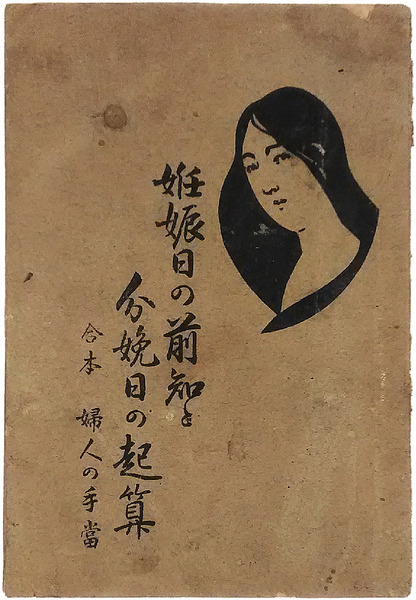 姙娠日の前知と
分娩日の起算
合本 婦人の手當